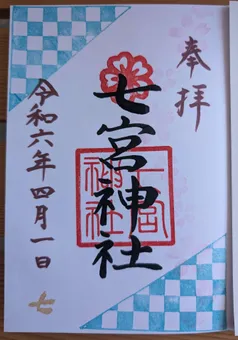 奉拝
七宮神社
七宮神社
令和六年四月一日
七